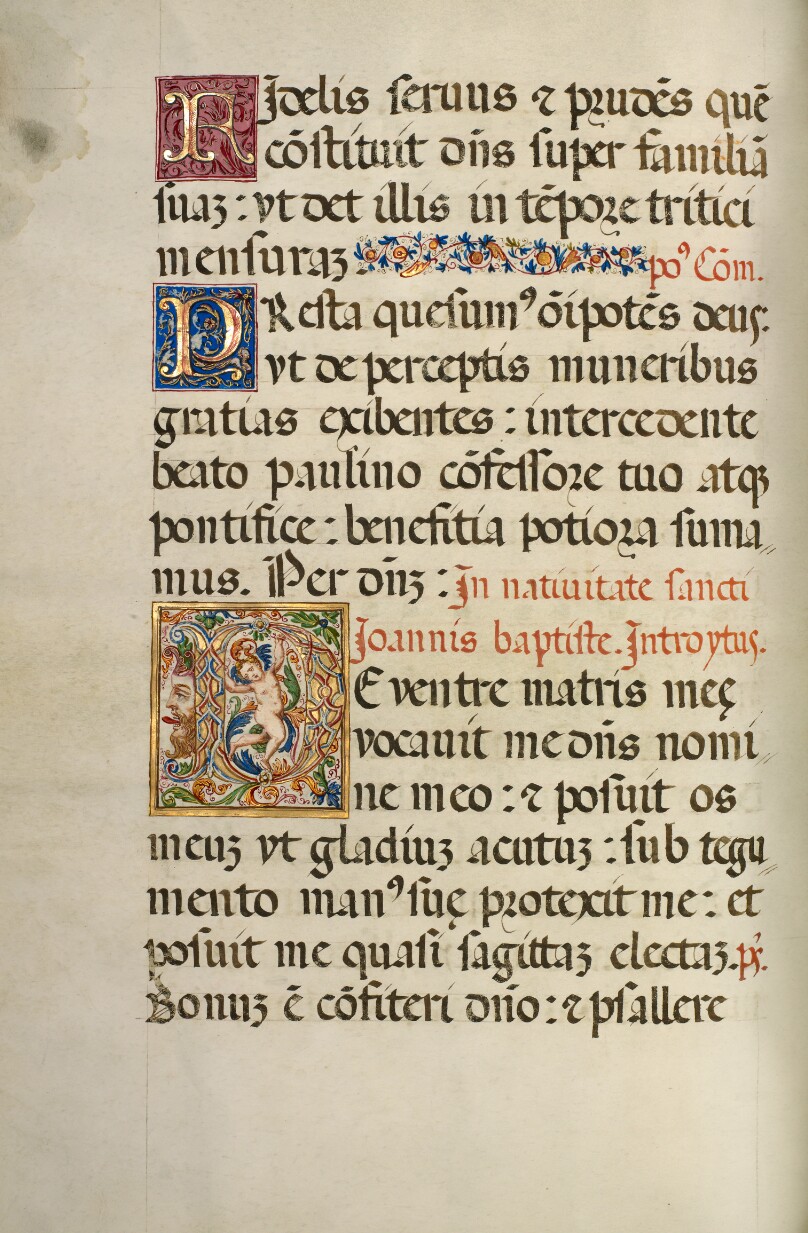 FIdelis seruus ⁊ prudẽs quẽ
cõstituit dñs super familiã
suaʒ : vt det illis in tẽpore tritici
mensuraʒ poꝰ Cõm.
PResta quesumꝰ õipotẽs deus:
vt de perceptis muneribus
gratias exibentes : intercedente
beato paulino cõfessore tuo atqꝫ
pontifice : benefitia potiora suma〃
mus. Per dñʒ : In natiuitate sancti
Joannis baptiste. Introytus.
DE ventre matris meę
vocauit me dñs nomi〃
ne meo : ⁊ posuit os
meuʒ vt gladiuʒ acutuʒ : sub tegu〃
mento manꝰ suę protexit me : et
posuit me quasi sagittaʒ electaʒ. ps.
Bonuʒ ẽ cõfiteri dño : ⁊ psallere